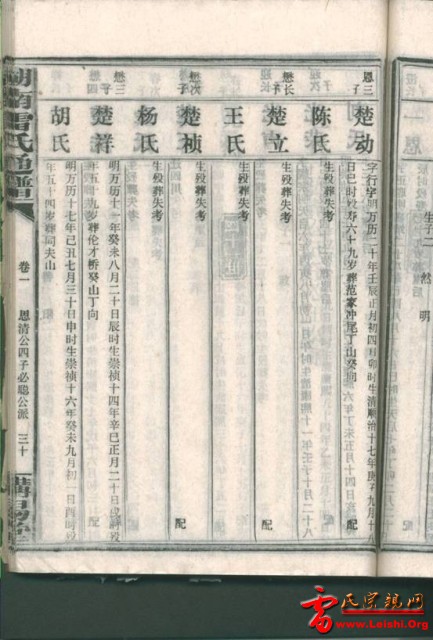 生子二 然 明
恩三子
楚动
字行字明万历二十年壬辰正月初四日卯时生清顺治十七年庚子九月十八
日巳时殁寿六十九岁葬范家冲尾丁山癸向 配
陈氏
生殁葬失考
懋长子
楚立
生殁葬失考 配
王氏
生殁葬失考
懋次子
楚祯
生殁葬失考 配
杨氏
懋三子
楚祥
明万历十一年癸未八月二十日辰时生崇祯十四年辛巳正月二十日戌时殁
年五十九岁葬伦才桥癸山丁向 配
胡氏
明万历十七年己丑七月三十日申时生崇祯十六年癸未九月初一日酉时殁
年五十四岁葬同夫山
湖南雷氏通谱
卷一 恩清公四子必聪公派 三十
雷氏宗亲网
www.Leishi.Org